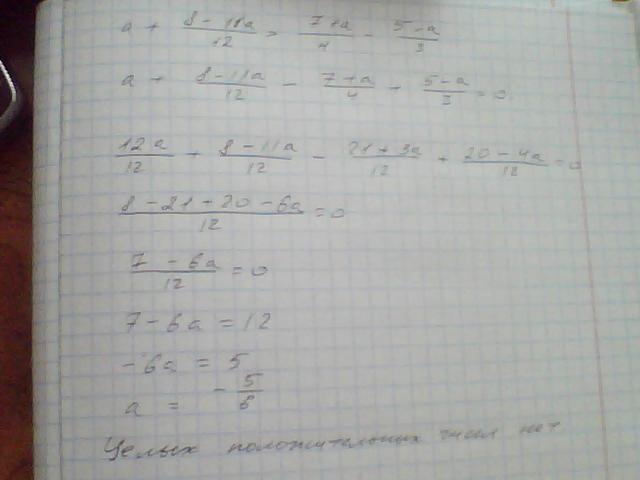 a + (8 - 11a)/12 > (7 + a)/4 - (5 - a)/3
a + (8 - 11a)/12 - (7 + a)/4 + (5 - a)/3 = 0
12a/12 + (8 - 11a)/12 - (21 + 3a)/12 + (20 - 4a)/12 = 0
(8 - 21 + 20 - 6a)/12 = 0
(7 - 6a)/12 = 0
7 - 6a = 12
-6a = 5
a = -5/6
Целых положительных чисел нет